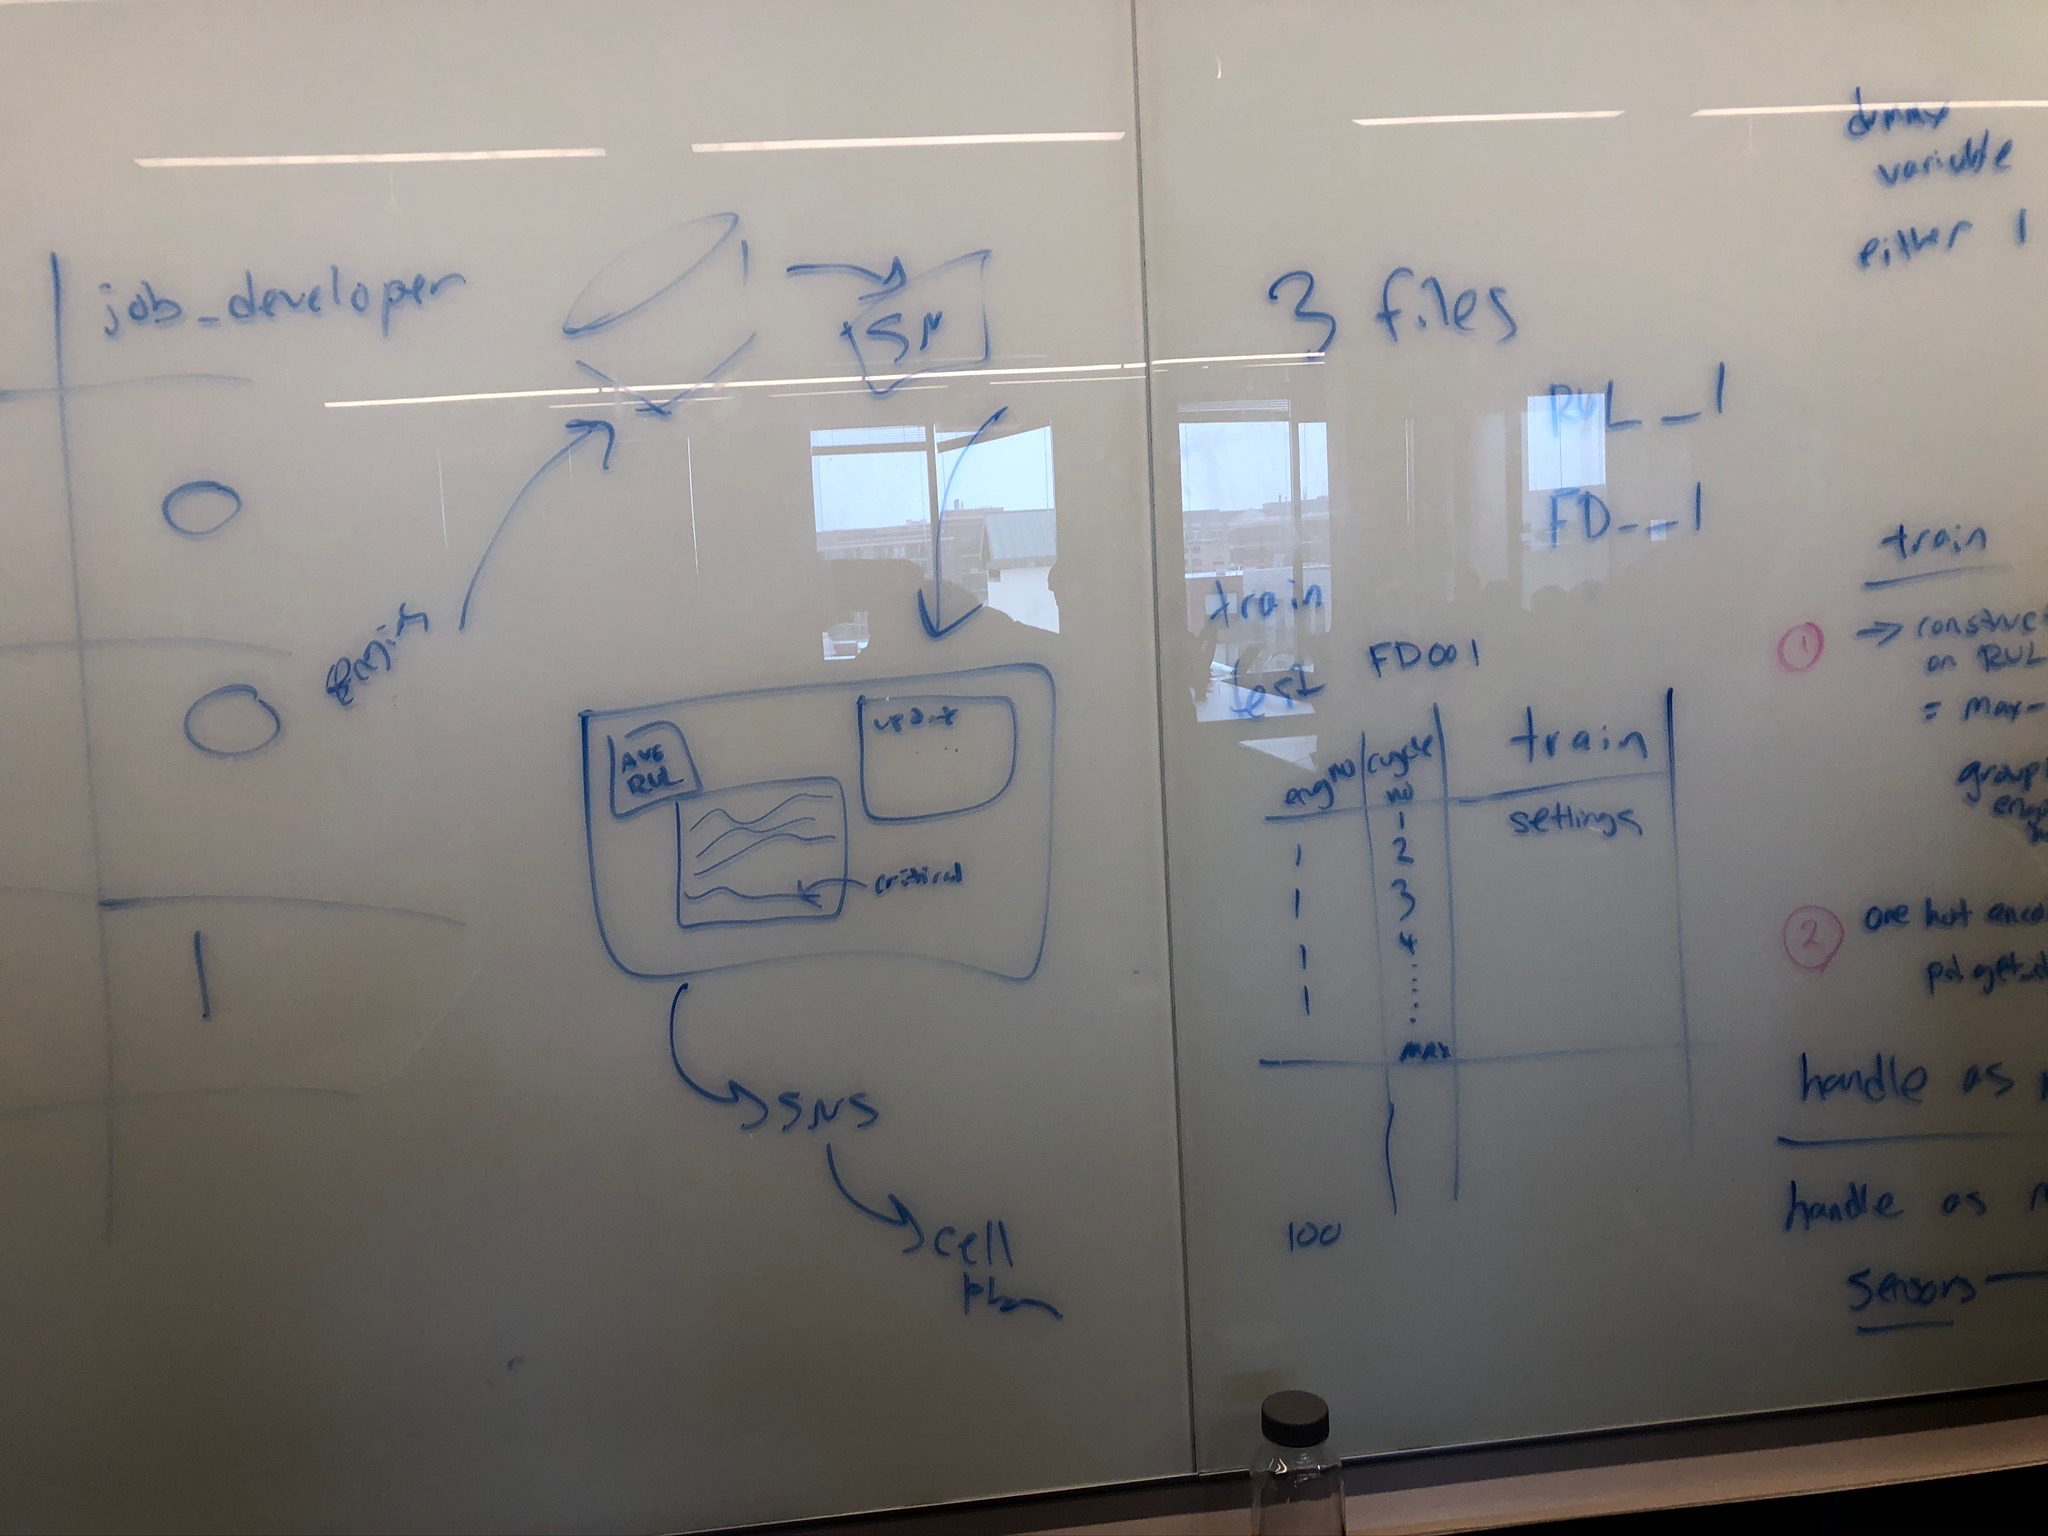 job_developer
0
0
1
SM
AVG
RUL
update
critical
SNS
cell
3 files
RUL_1
FD__1
train
test
FD001
eng no
cycle
no
train
settings
1
1 2
1 3
1 4
1
max
100
dummy
variable
either 1
train
1 → construc
on RUL
= max-
group
2 one hot enco
pd.get_d
handle as
handle as
sensors